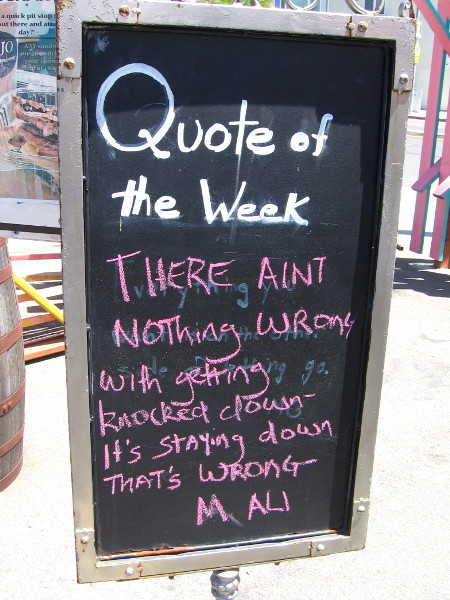 a quick pit stop
out there and atta
day?!
JO
ANY sand
Quote of
the Week
THERE AINT
NOTHING WRONG
with getting
knocked down-
It's staying down
THAT'S WRONG
M ALI